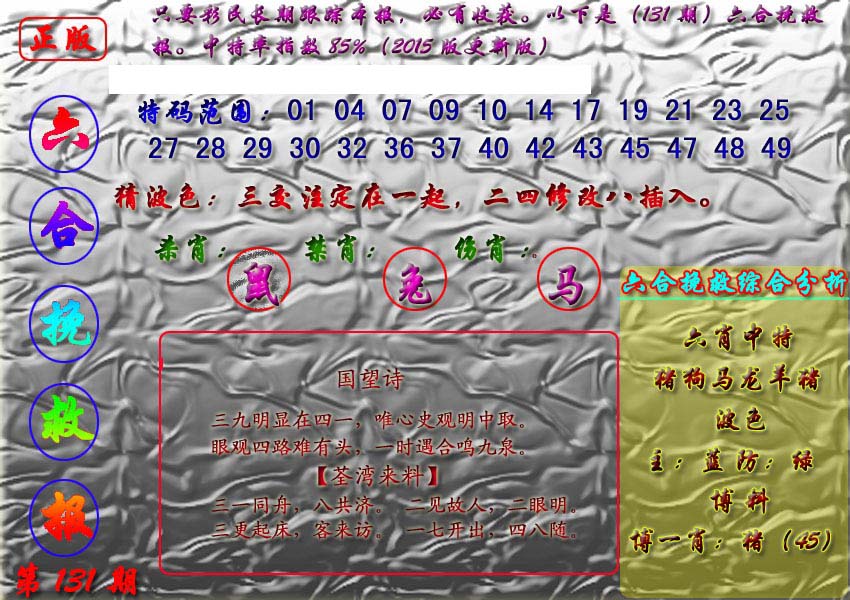 正版
只要彩民长期跟踪本报，必有收获。以下是（131期）六合挽救
报。中特率指数85%（2015版更新版）
特码范围：01 04 07 09 10 14 17 19 21 23 25
27 28 29 30 32 36 37 40 42 43 45 47 48 49
猜波色：三交注定在一起，二四修改八插入。
杀肖：鼠 禁肖：兔 伤肖：马
六合挽救报
第131期
国望诗
三九明显在四一，唯心史观明中取。
眼观四路难有头，一时遇合鸣九泉。
【荃湾来料】
三一同舟，八共济。 二见故人，二眼明。
三更起床，客来访。 一七开出，四八随。
六合挽救综合分析
六肖中特
猪狗马龙羊猪
波色
主：蓝防：绿
博料
博一肖：猪（45）